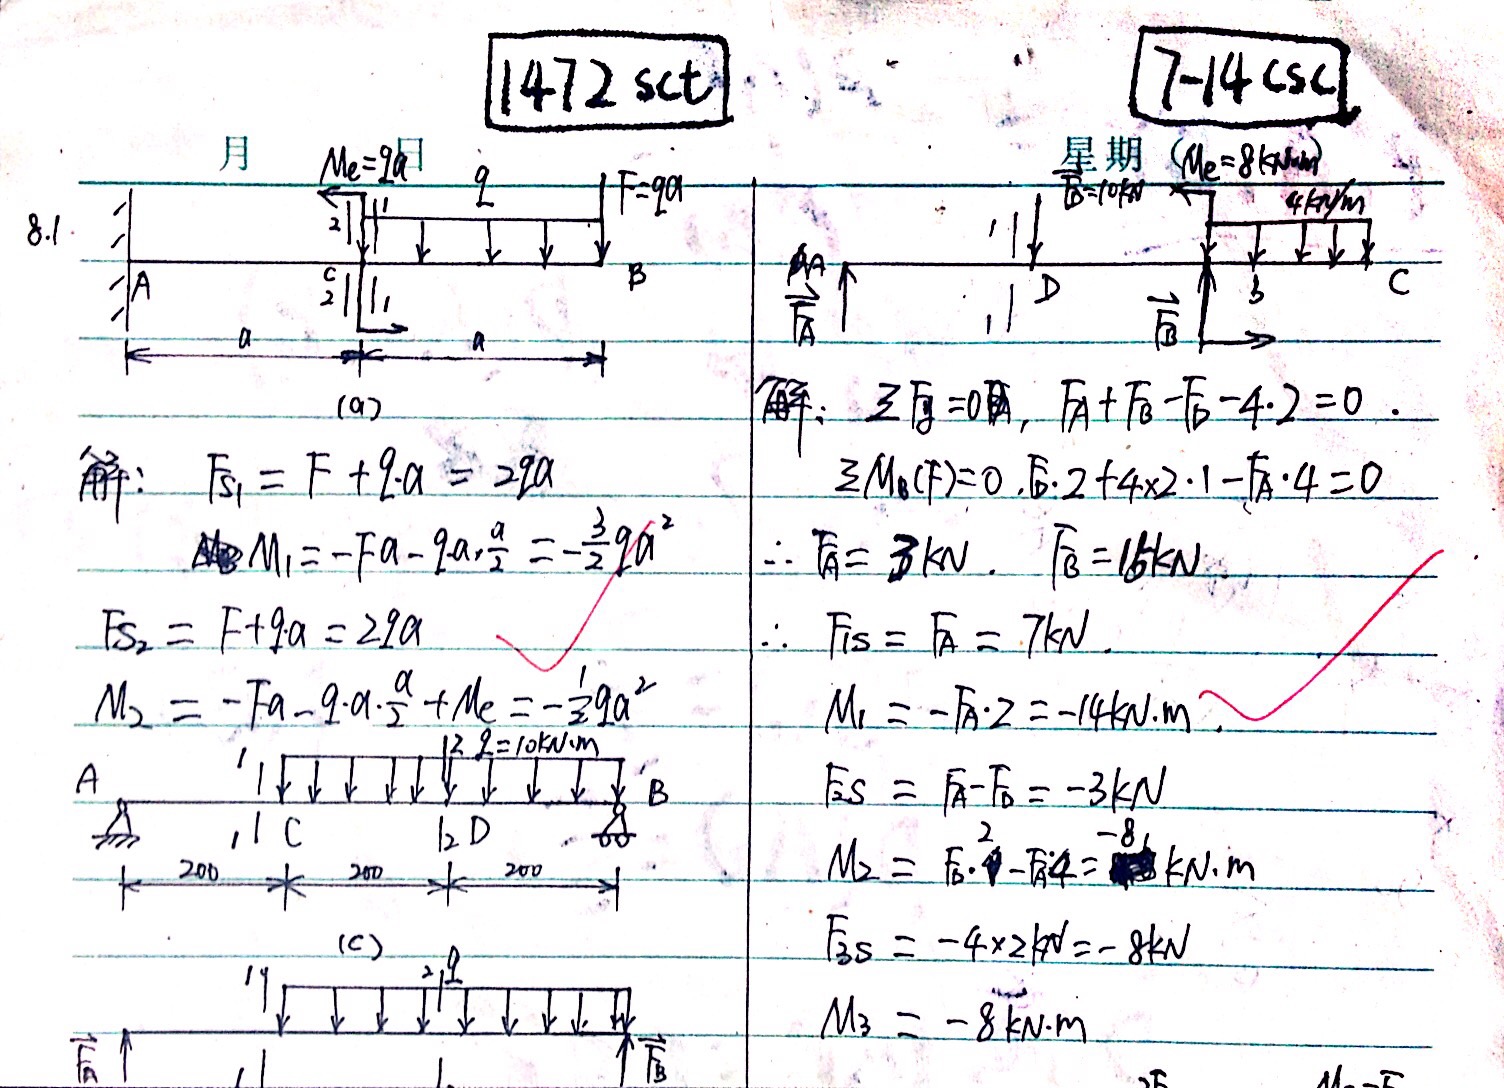 1472 sct
7-14 csc
月 日
星期
8.1
Me=qa
q
F=qa
2 1
A
C
B
2 1
a
a
(a)
解: Fs₁ = F + q·a = 2qa
M₁ = -Fa - q·a·a/2 = -3/2 qa²
Fs₂ = F+q·a = 2qa
M₂ = -Fa - q·a·a/2 + Me = -1/2 qa²
A
1
2 q=10kN·m
B
1 C
2 D
200
200
200
(c)
1
2
q
FA
FB
FD=10kN
(Me=8kN·m)
4kN/m
A
1
D
B
C
FA
1
FB
解: ΣFy=0, FA+FB-FD-4·2=0.
ΣMB(F)=0, FD·2+4×2·1-FA·4=0
∴ FA= 3kN. FB=15kN
∴ F1S = FA = 7kN.
M₁ = -FA·2 = -14kN·m.
F2S = FA-FD = -3kN
M₂ = FD·2-FA·4= -8 kN·m
F3S = -4×2kN=-8kN
M₃ = -8kN·m